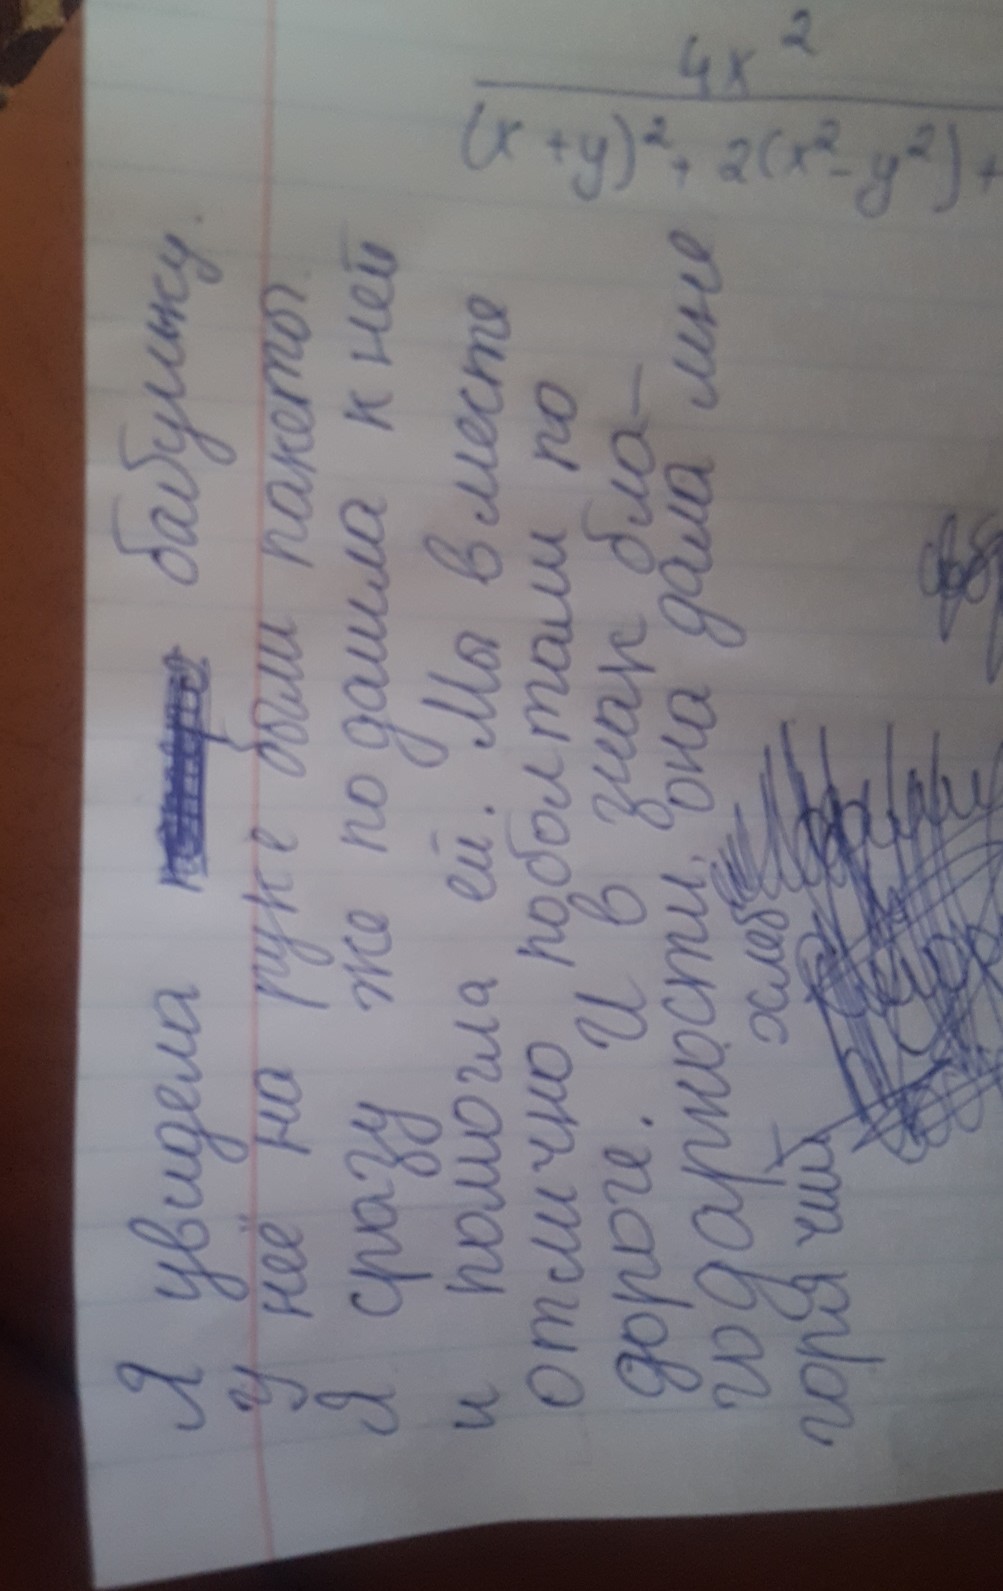 Я увидела бабульку.
У неё на руке были пакеты.
Я сразу же подашла к ней
и помогла ей. Мы вместе
отлично поболтали по
дороге. И в знак бла-
годарности, она дала мне
горячий хлеб
4x²
(x+y)² + 2(x²-y²) +